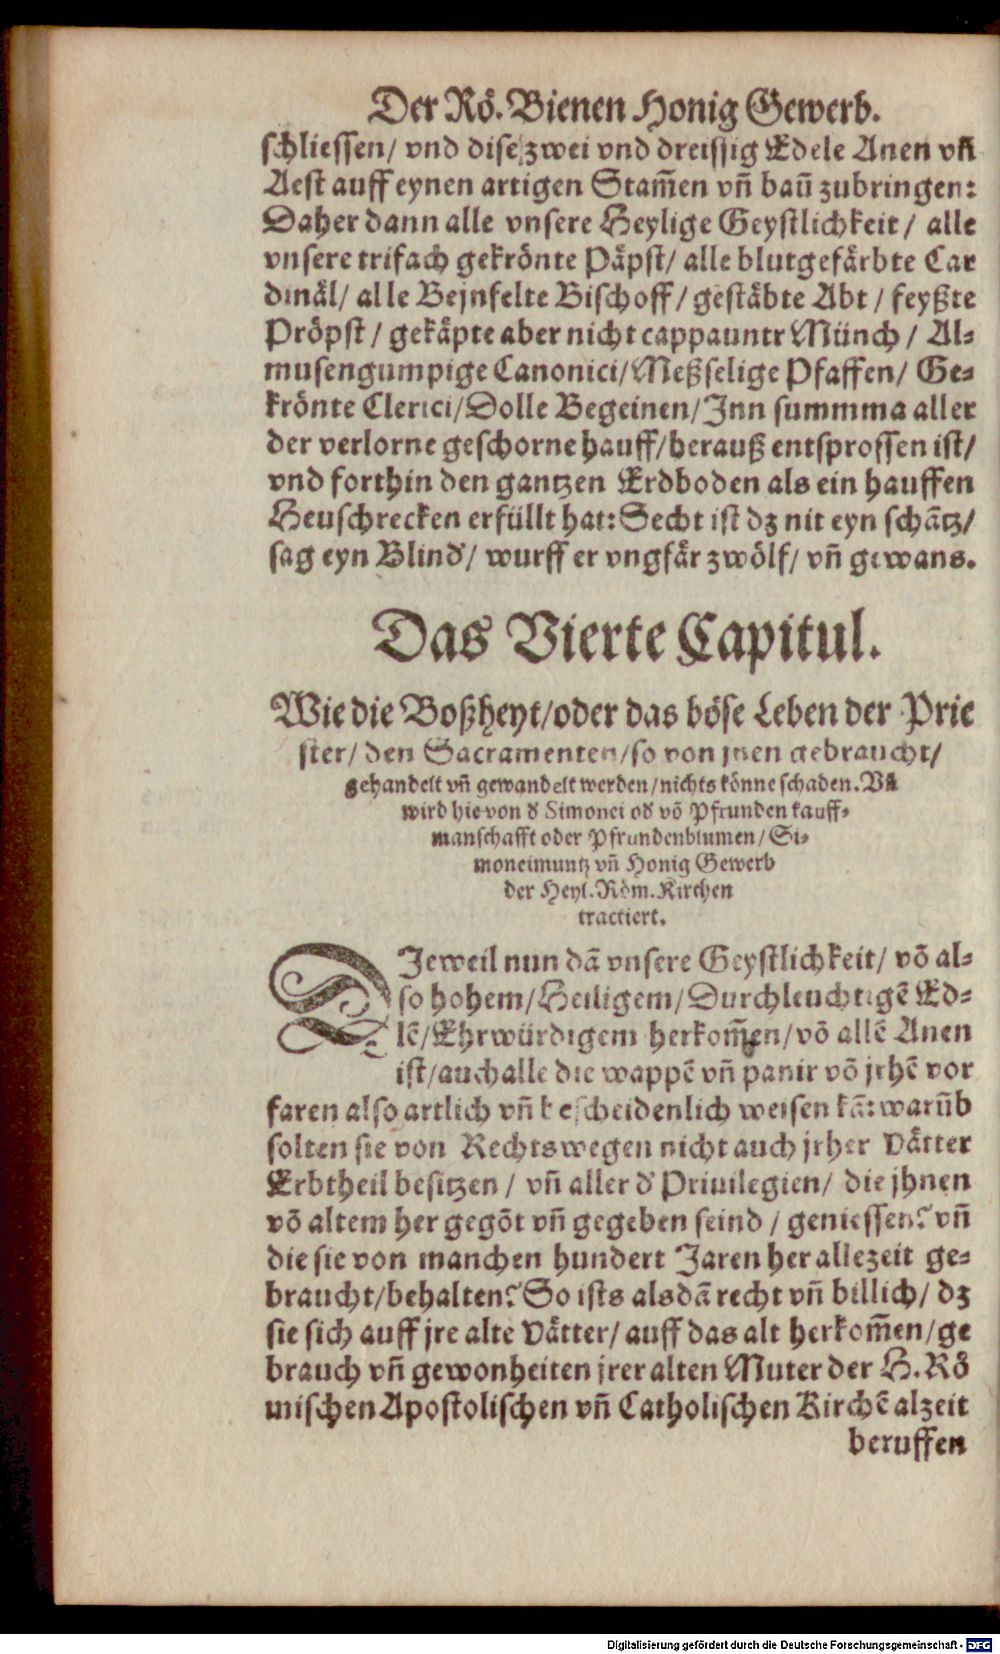 Der Rö. Bienen Honig Gewerb.
schliessen/ vnd dise zwei vnd dreissig Edele Anen vñ
Aest auff eynen artigen Stam̃en vñ baũ zubringen:
Daher dann alle vnsere Heylige Geystlichkeit/ alle
vnsere trifach gekrönte Päpst/ alle blutgefärbte Car
dinäl/ alle Beinfelte Bischoff/ gestäbte Abt/ feyßte
Pröpst/ gekäpte aber nicht cappaunte Münch/ Al-
musengumpige Canonici/ Meßselige Pfaffen/ Ge-
krönte Clerici/ Dolle Begeinen/ Inn summma aller
der verlorne geschorne hauff/ herauß entsprossen ist/
vnd forthin den gantzen Erdboden als ein hauffen
Heuschrecken erfüllt hat: Secht ist dz nit eyn schãtz/
sag eyn Blind/ wurff er vngfär zwölf/ vñ gewans.
Das Vierte Capitul.
Wie die Boßheyt/ oder das böse Leben der Prie
ster/ den Sacramenten/ so von jnen gebraucht/
gehandelt vñ gewandelt werden/ nichts könne schaden. Vñ
wird hie von d Simonei od võ Pfrunden kauff-
manschafft oder Pfrundenblumen/ Si-
moneimuntz vñ Honig Gewerb
der Heyl. Röm. Kirchen
tractiert.
DJeweil nun dã vnsere Geystlichkeit/ võ al-
so hohem/ Heiligem/ Durchleuchtigẽ Ed-
lẽ/ Ehrwürdigem herkom̃en/ võ allẽ Anen
ist/ auch alle die wappẽ vñ panir võ jrhẽ vor
faren also artlich vñ bescheidenlich weisen kã: warũb
solten sie von Rechtswegen nicht auch jrher Vätter
Erbtheil besitzen/ vñ aller d' Priuilegien/ die jhnen
võ altem her gegõt vñ gegeben seind/ geniessen? vñ
die sie von manchen hundert Jaren her allezeit ge-
braucht/ behalten? So ists alsdã recht vñ billich/ dz
sie sich auff jre alte Vätter/ auff das alt herkom̃en/ ge
brauch vñ gewonheiten jrer alten Muter der H. Rö
mischen Apostolischen vñ Catholischen Kirchẽ alzeit
beruffen
Digitalisierung gefördert durch die Deutsche Forschungsgemeinschaft - DFG